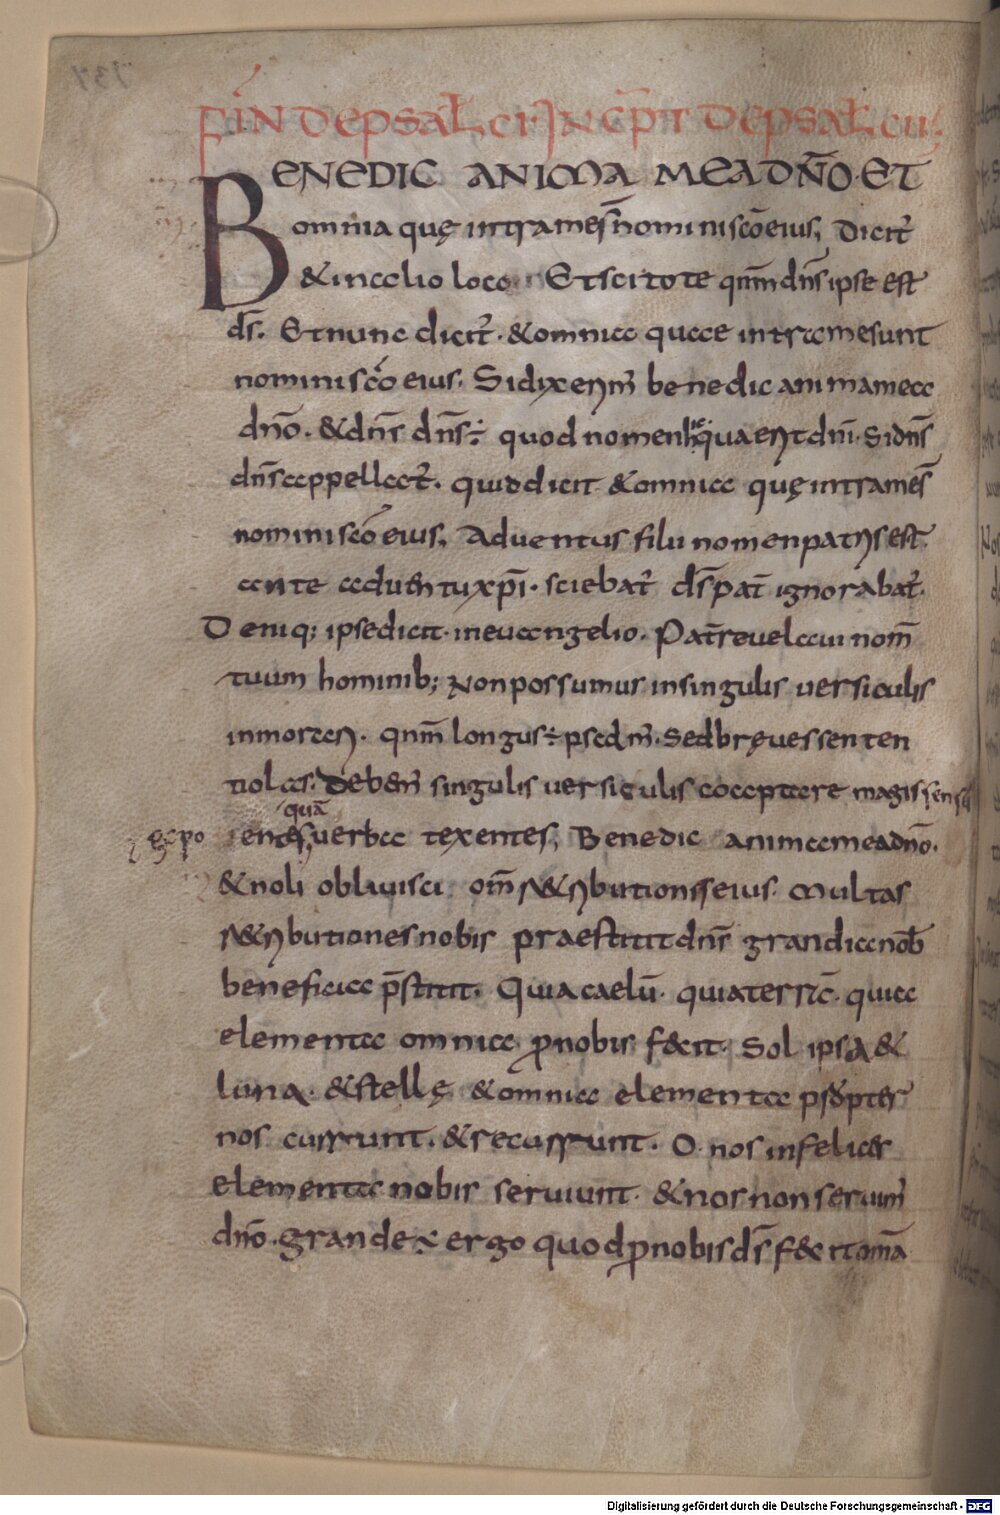 FIN DE PSAL̅ CI INCP̅T DE PSAL̅ CII.
BENEDIC ANIMA MEA DN̅O. ET
omnia quę intra me s̅ nomini sc̅o eius, Dicit̅
& in alio loco. Et scitote qnm̅ dn̅s ipse est
ds̅. Et nunc dicit̅. & omnia quae intra me sunt
nomini sc̅o eius. Si dixerim̅ benedic anima mea
dn̅o. & dn̅s dn̅s ÷ quod nomen quaerit dn̅i. Si dn̅s
dn̅s appellat̅. quid dicit & omnia quę intra me s̅
nomini sc̅o eius, Adventus filii nomen patris est
ante aduentu xp̅i. sciebat̅ ds̅ pat̅ ignorabat̅.
Deniq; ipse dicit in euangelio. Pat̅ revelaui nom̅
tuum hominib; Non possumus in singulis versiculis
inmorari. qnm̅ longus ÷ psalm̅. Sed bręves senten
tiolas. Debem̅ singulis versiculis coaptare magis sensū
quā
expo entes, verba texentes, Benedic anima mea dn̅o.
& noli oblivisci om̅s r&ributionis eius. Multas
r&ributiones nobis praestitit dn̅s grandia nob̅
beneficia p̅stitit. Quia caelū. quia terrā. quia
elementa omnia p̲nobis fecit. Sol ipsa &
luna. & stellę & omnia elementa propter
nos currunt. & recurrunt. O nos infelices
elementa nobis serviunt. & nos non servim̅
dn̅o. grande ÷ ergo quod p̲nobis ds̅ fecit omā